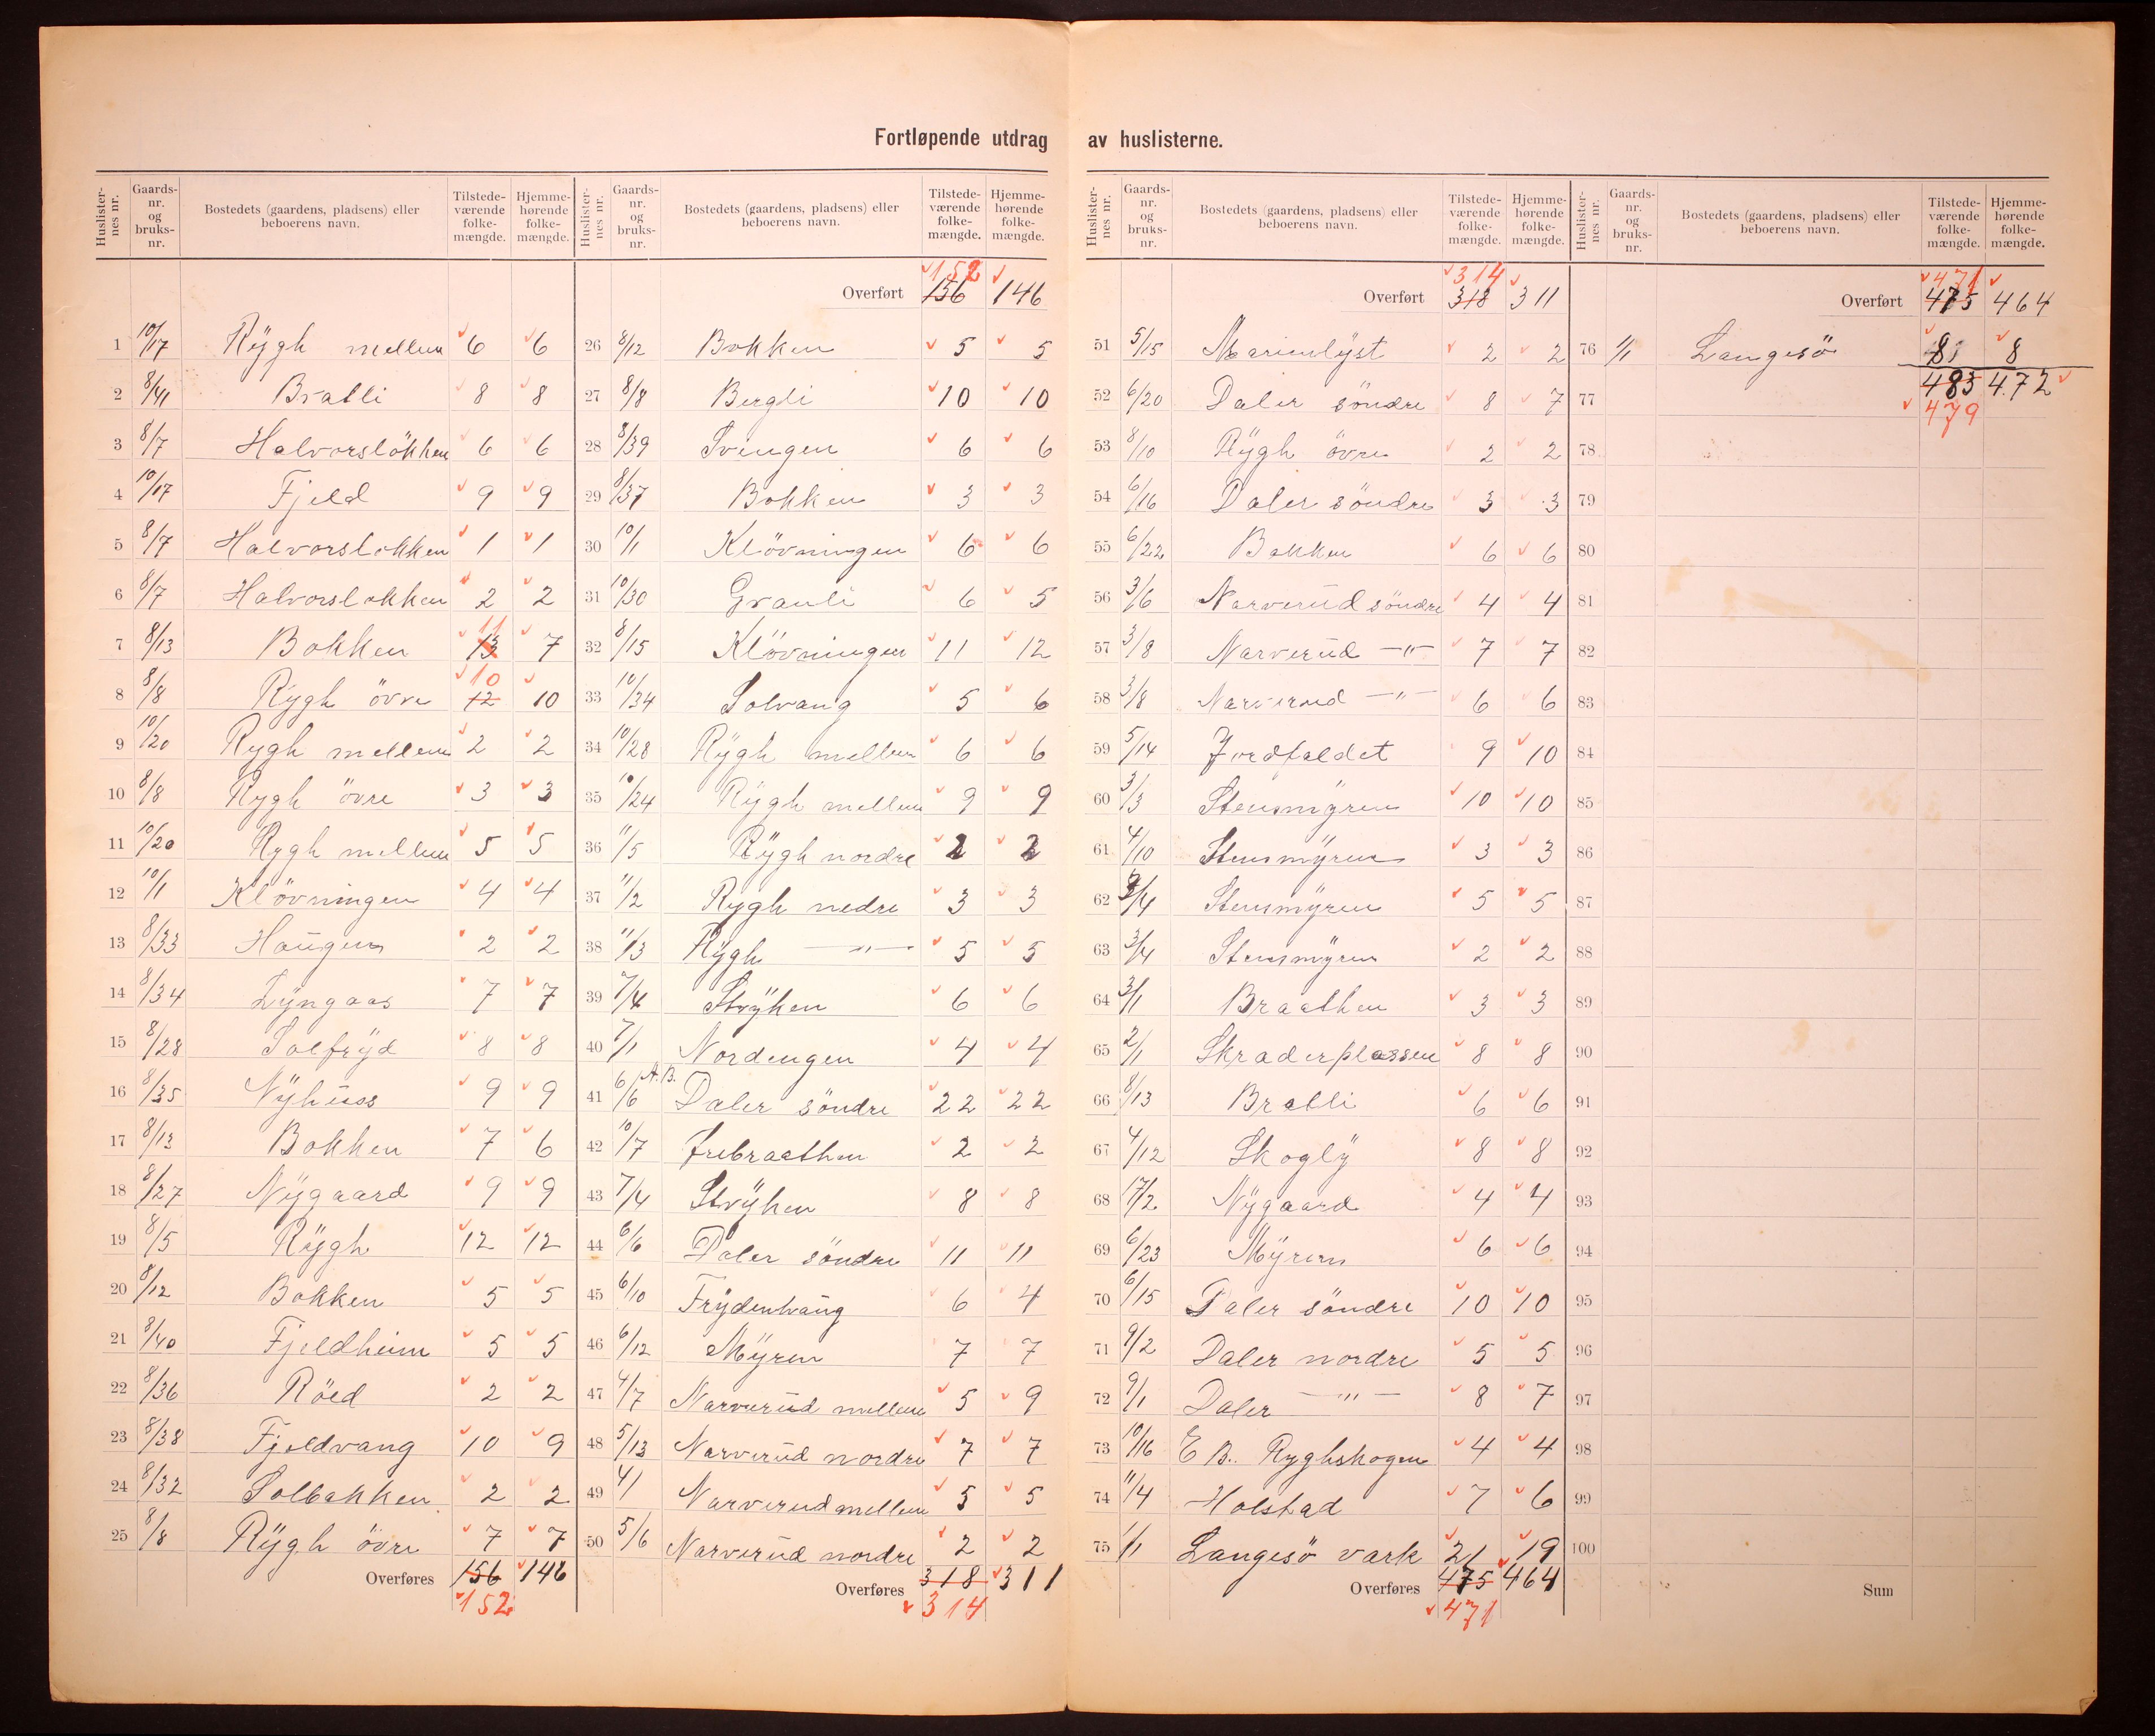 Fortløpende utdrag av huslisterne.
Huslister-nes nr. Gaards-nr. og bruks-nr. Bostedets (gaardens, pladsens) eller beboerens navn. Tilstede-værende folke-mængde. Hjemme-hørende folke-mængde.
1 10/17 Rÿgh mellem 6 6
2 8/41 Bratli 8 8
3 8/7 Halvorslökken 6 6
4 10/17 Fjeld 9 9
5 8/7 Halvorslokken 1 1
6 8/7 Halvorslokken 2 2
7 8/13 Bakken 13 11 7
8 8/8 Rÿgh övre 12 10 10
9 10/20 Rygh mellem 2 2
10 8/8 Rygh övre 3 3
11 10/20 Rygh mellem 5 5
12 10/1 Klövningen 4 4
13 8/33 Haugen 2 2
14 8/34 Lÿngaas 7 7
15 8/28 Solfrÿd 8 8
16 8/35 Nÿhuss 9 9
17 8/13 Bakken 7 6
18 8/27 Nÿgaard 9 9
19 8/5 Rÿgh 12 12
20 8/12 Bakken 5 5
21 8/40 Fjeldheim 5 5
22 8/36 Röed 2 2
23 8/38 Fjeldvang 10 9
24 8/32 Solbakken 2 2
25 8/8 Rÿgh övre 7 7
Overføres 156 146
152
Huslister-nes nr. Gaards-nr. og bruks-nr. Bostedets (gaardens, pladsens) eller beboerens navn. Tilstede-værende folke-mængde. Hjemme-hørende folke-mængde.
152
Overført 156 146
26 8/12 Bakken 5 5
27 8/8 Bergli 10 10
28 8/39 Svingen 6 6
29 8/37 Bakken 3 3
30 10/1 Klövningen 6 6
31 10/30 Granli 6 5
32 8/15 Klövningen 11 12
33 10/34 Solvang 5 6
34 10/28 Rÿgh mellem 6 6
35 10/24 Rÿgh mellem 9 9
36 11/5 Rÿgh nordre 2 2
37 11/2 Rygh nedre 3 3
38 11/3 Rÿgh —"— 5 5
39 7/4 Strÿken 6 6
40 7/1 Nordengen 4 4
41 6/6 A.B. Daler söndre 22 22
42 10/7 2 2
43 7/4 Strÿken 8 8
44 6/6 Daler söndre 11 11
45 6/10 Frÿdenhaug 6 4
46 6/12 Mÿren 7 7
47 4/7 Narverud mellem 5 9
48 5/13 Narverud nordre 7 7
49 4/1 Narverud mellem 5 5
50 5/6 Narverud nordre 2 2
Overføres 318 311
314
Huslister-nes nr. Gaards-nr. og bruks-nr. Bostedets (gaardens, pladsens) eller beboerens navn. Tilstede-værende folke-mængde. Hjemme-hørende folke-mængde.
314
Overført 318 311
51 5/15 Marienlÿst 2 2
52 6/20 Daler söndre 8 7
53 8/10 Rÿgh övre 2 2
54 6/16 Daler söndre 3 3
55 6/22 Bakken 6 6
56 3/6 Narverud söndre 4 4
57 3/8 Narverud —"— 7 7
58 3/8 Narverud —"— 6 6
59 5/14 Jordfaldet 9 10
60 3/3 Stensmÿren 10 10
61 4/10 Stensmÿren 3 3
62 3/4 Stensmÿren 5 5
63 3/4 Stensmÿren 2 2
64 3/1 Braathen 3 3
65 2/1 Skraderplassen 8 8
66 8/13 Bratli 6 6
67 4/12 Skoglÿ 8 8
68 17/2 Nÿgaard 4 4
69 6/23 Mÿren 6 6
70 6/15 Daler söndre 10 10
71 9/2 Daler nordre 5 5
72 9/1 Daler —"— 8 7
73 10/16 E B. Ryghskogen 4 4
74 11/4 Holstad 7 6
75 1/1 Langesö vark 21 19
Overføres 475 464
471
Huslister-nes nr. Gaards-nr. og bruks-nr. Bostedets (gaardens, pladsens) eller beboerens navn. Tilstede-værende folke-mængde. Hjemme-hørende folke-mængde.
471
Overført 475 464
76 1/1 Langesö 8 8
483 472
77 479
78
79
80
81
82
83
84
85
86
87
88
89
90
91
92
93
94
95
96
97
98
99
100
Sum